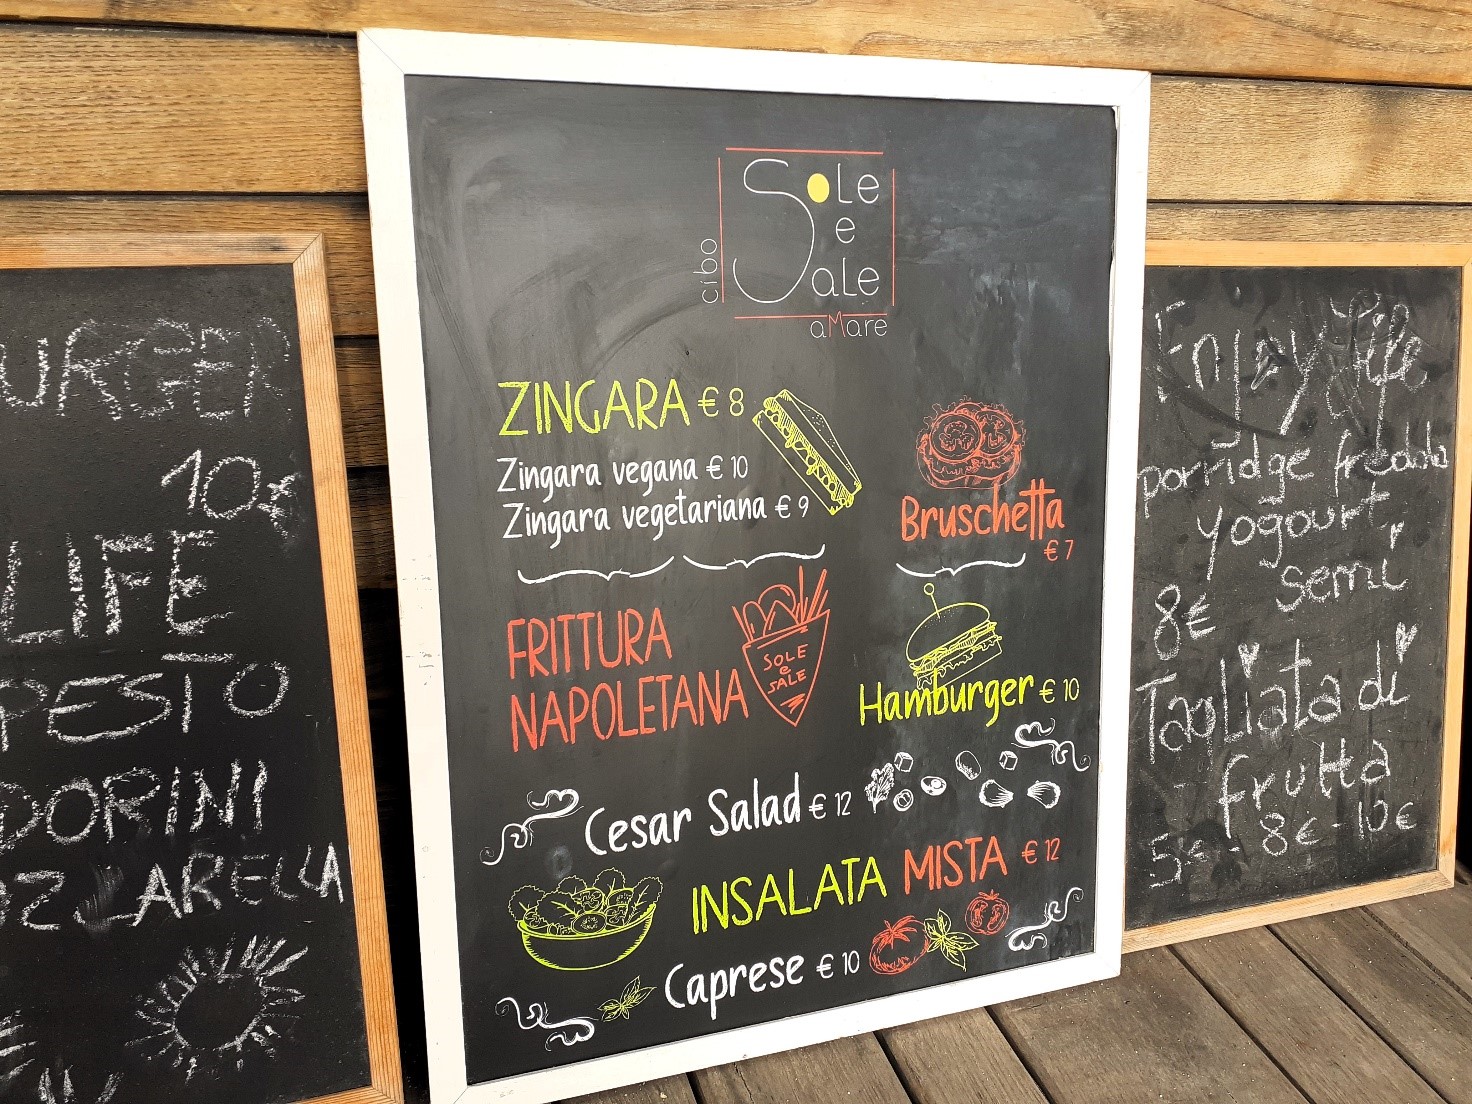 URGER
10€
LIFE
PESTO
DORINI
ARELLA
Sole
e
Sale
cibo
aMare
ZINGARA € 8
Zingara vegana € 10
Zingara vegetariana € 9
Bruschetta
€ 7
FRITTURA
NAPOLETANA
SOLE
e
SALE
Hamburger € 10
Cesar Salad € 12
INSALATA MISTA € 12
Caprese € 10
Enjoy life
porridge freddo
yogourt,
semi
8€
Tagliata di
frutta
5€ - 8€ - 10€